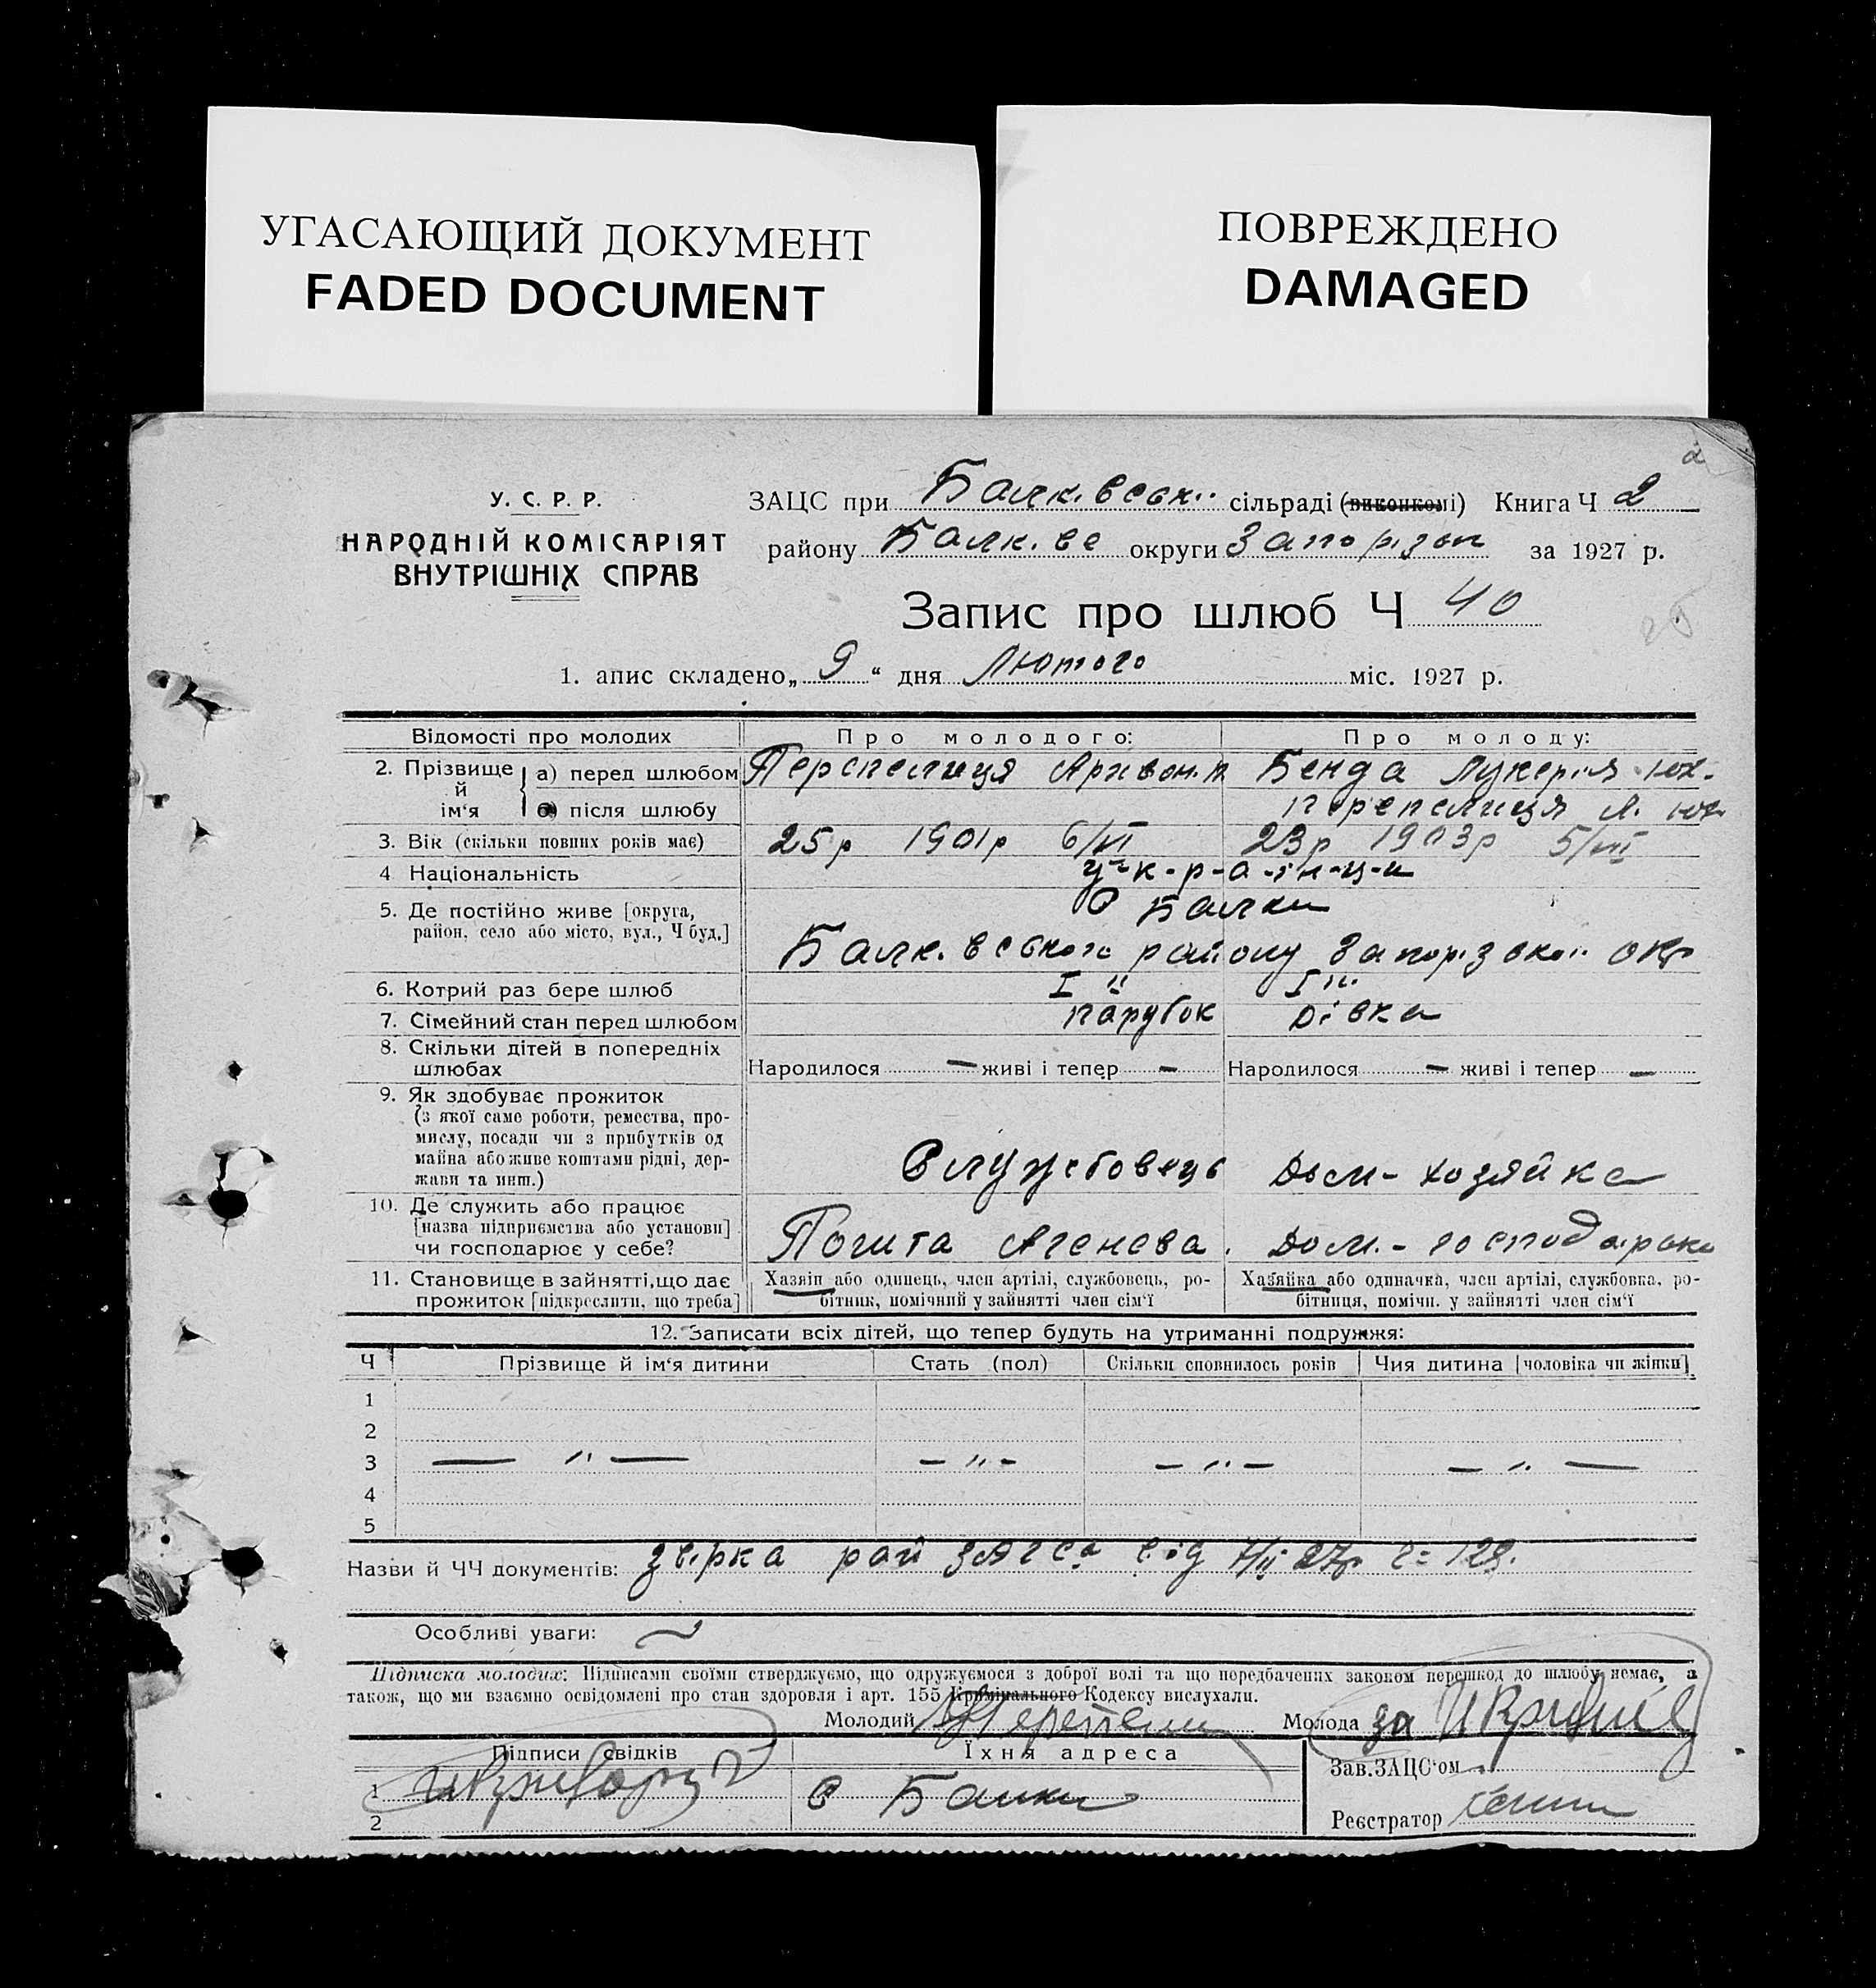 УГАСАЮЩИЙ ДОКУМЕНТ
FADED DOCUMENT
ПОВРЕЖДЕНО
DAMAGED
У. С. Р. Р.
НАРОДНІЙ КОМІСАРІЯТ
ВНУТРІШНІХ СПРАВ
ЗАЦС при Балківськ. сільраді (виконкомі) Книга Ч 2
району Балків округи Запорізьк за 1927 р.
Запис про шлюб Ч 40
1. апис складено „ 9 “ дня Лютого міс. 1927 р.
Відомості про молодих Про молодого: Про молоду:
2. Прізвище й ім‘я а) перед шлюбом Перепелиця Бенда Лукерія Юх.
б) після шлюбу Перепелиця Л. Юх
3. Вік (скільки повних років має) 25р 1901р 6/VI 23р 1903р
4 Національність у-к-р-а-їн-ц-и
5. Де постійно живе [округа, С Балки
район, село або місто, вул., Ч буд.] Балківського району Запорізької окр
6. Котрий раз бере шлюб I I
7. Сімейний стан перед шлюбом парубок дівка
8. Скільки дітей в попередніх
шлюбах Народилося — живі і тепер — Народилося — живі і тепер —
9. Як здобуває прожиток
(з якої саме роботи, ремества, про-
мислу, посади чи з прибутків од
майна або живе коштами рідні, дер-
жави та инш.) Службовець Дом-хозяйка
10. Де служить або працює
[назва підприємства або установи]
чи господарює у себе? Пошта Дом.-господарка
11. Становище в зайнятті, що дає Хазяїн або одинець, член артілі, службовець, ро- Хазяйка або одиначка, член артілі, службовка, ро-
прожиток [підкреслити, що треба] бітник, помічний у зайнятті член сім‘ї бітниця, помічн. у зайнятті член сім‘ї
12. Записати всіх дітей, що тепер будуть на утриманні подружжя:
Ч Прізвище й ім‘я дитини Стать (пол) Скільки сповнилось років Чия дитина [чоловіка чи жінки]
1
2
3 — " — — " — — " — — " —
4
5
Назви й ЧЧ документів: рай від 7/II 27р
Особливі уваги:
Підписка молодих: Підписами своїми стверджуємо, що одружуємося з доброї волі та що передбачених законом перешкод до шлюбу немає, а
також, що ми взаємно освідомлені про стан здоровля і арт. 155 Кримінального Кодексу вислухали.
Молодий Молода за
Підписи свідків Їхня адреса Зав. ЗАЦС‘ом
1 С Балки
2 Реєстратор